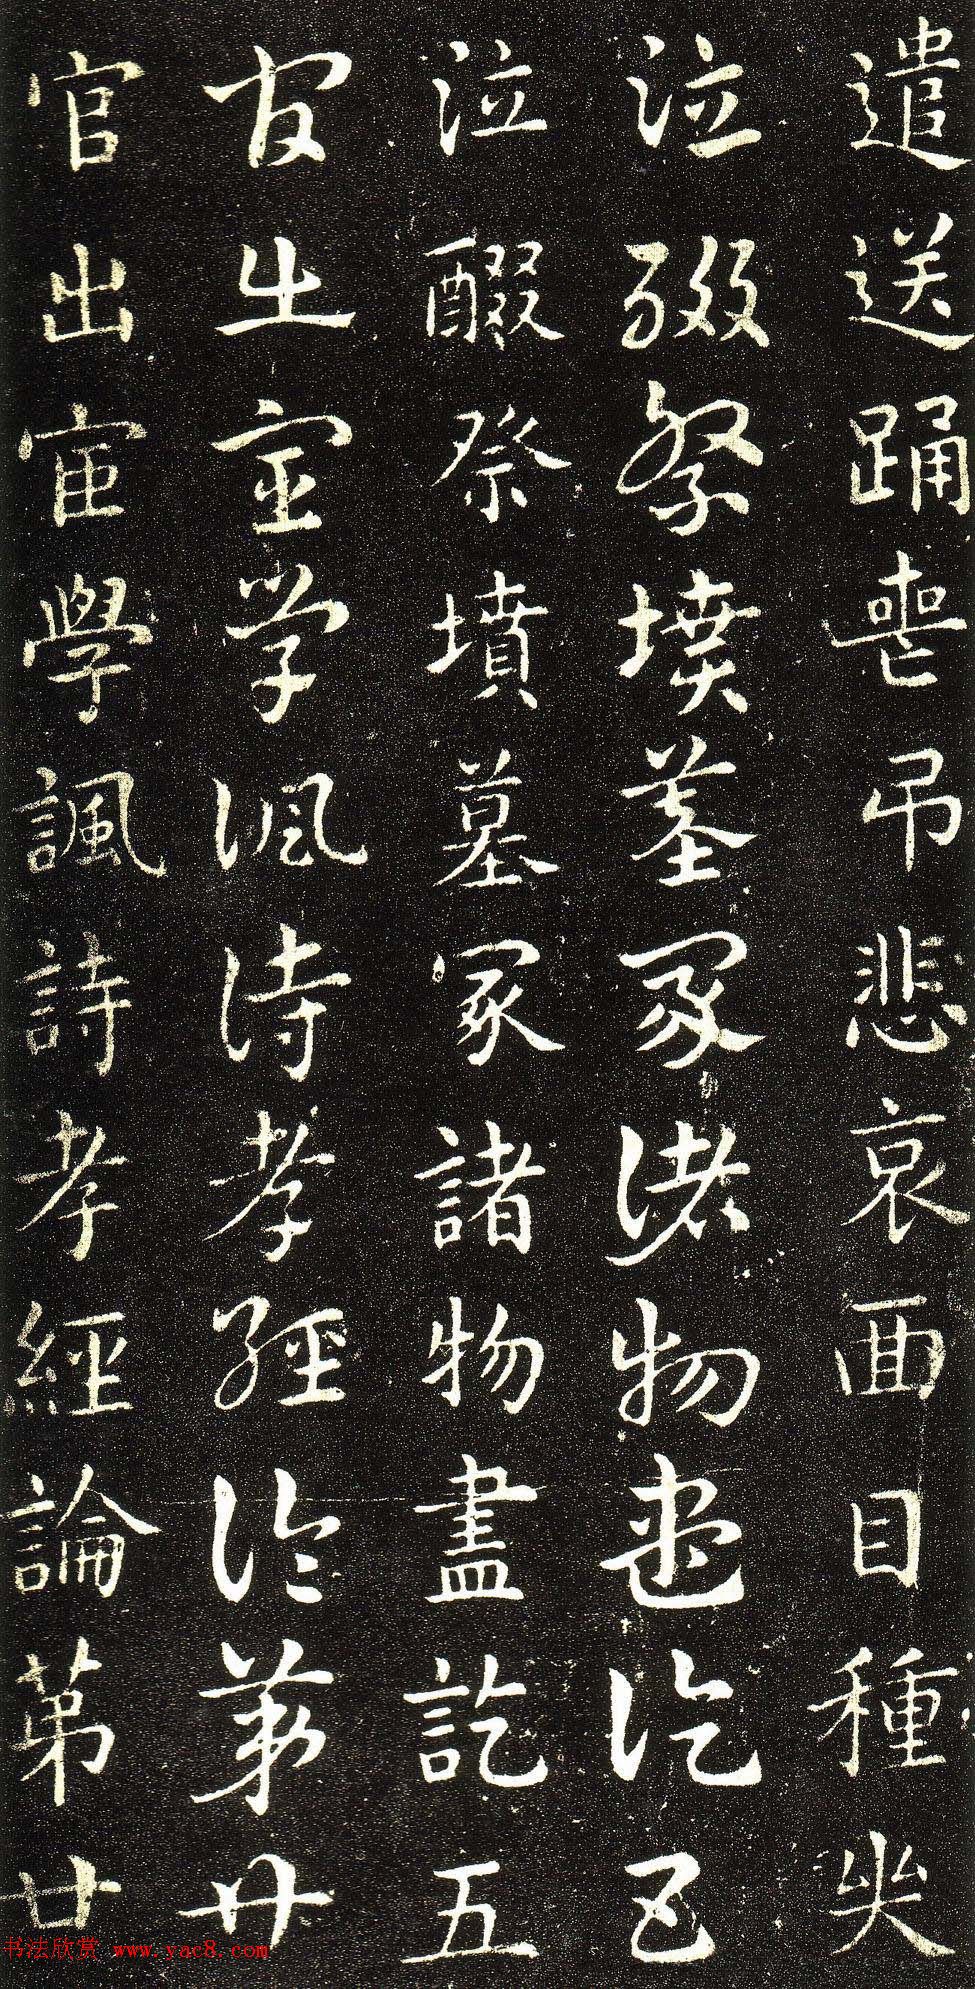 遣送踊喪吊悲哀面目種哭
泣醊祭墳墓冢諸物盡訖五
泣醊祭墳墓冢諸物盡訖五
官出宦學諷詩孝經論第廿
官出宦學諷詩孝經論第廿
书法欣赏 www.yac8.com